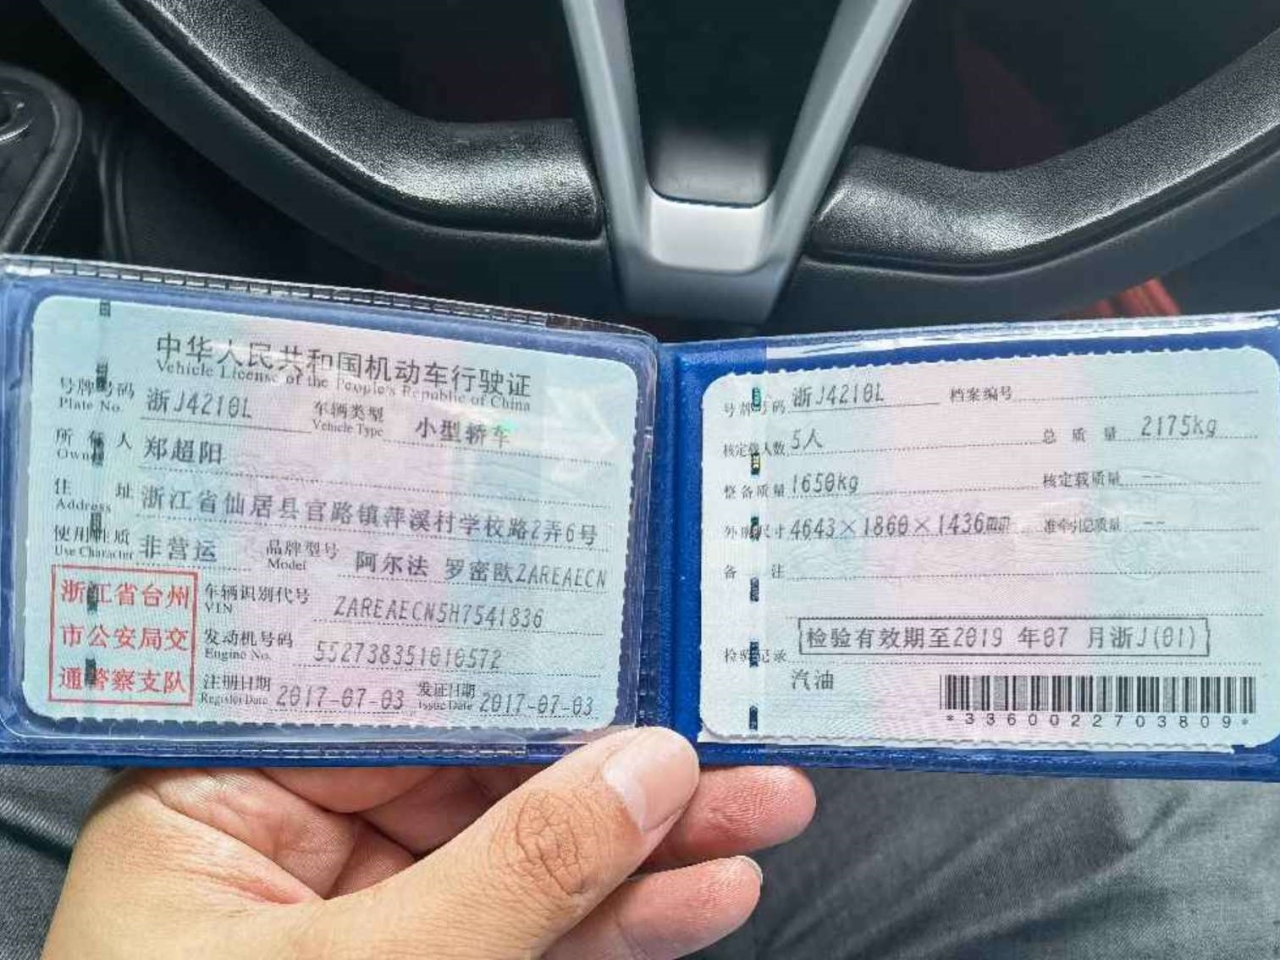 中华人民共和国机动车行驶证
Vehicle License of the People's Republic of China
号牌号码 浙J4210L 车辆类型 小型轿车
Plate No. Vehicle Type
所有人 郑超阳
Owner
住址 浙江省仙居县官路镇萍溪村学校路2弄6号
Address
使用性质 非营运 品牌型号 阿尔法 罗密欧ZAREAECN
Use Character Model
浙江省台州
市公安局交
通警察支队
车辆识别代号 ZAREAECN5H7541836
VIN
发动机号码 552738351010572
Engine No.
注册日期 2017-07-03 发证日期 2017-07-03
Register Date Issue Date
号牌号码 浙J4210L 档案编号
核定载人数 5人 总质量 2175kg
整备质量 1650kg 核定载质量 --
外廓尺寸 4643×1860×1436mm 准牵引总质量 --
备注
检验记录 检验有效期至2019 年07 月浙J(01)
汽油
*3360022703809*